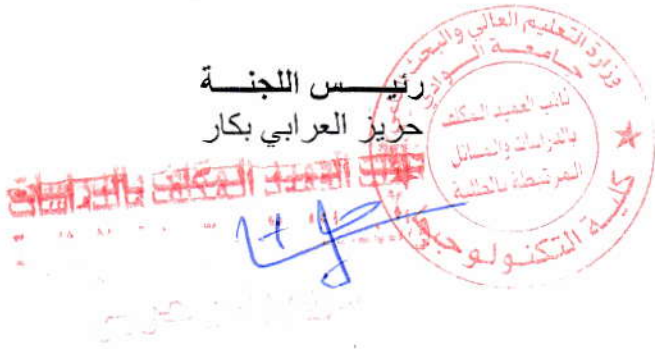 رئيـــس اللجنـــة
حريز العرابي بكار
وزارة التعليم العالي والبحث
جامعـة الـوادي
نائب العميد المكلف
بالدراسات والمسائل
المرتبطة بالطلبة
كلية التكنولوجيا
نائب العميد المكلف بالدراسات